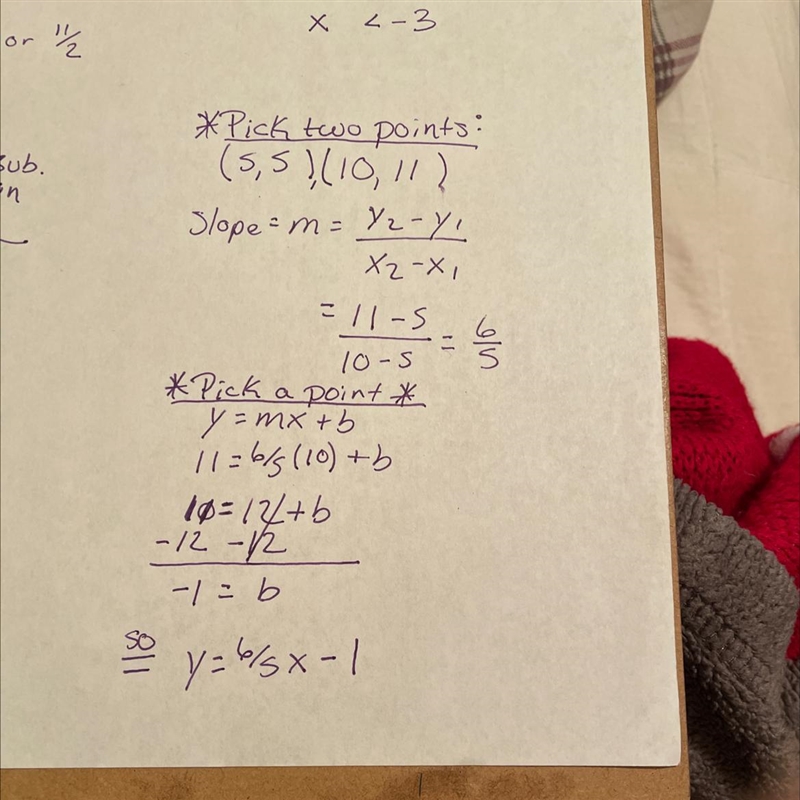 or 11/2
x < -3
sub.
*Pick two points:
(5,5),(10,11)
Slope = m = y₂ - y₁ / x₂ - x₁
= 11 - 5 / 10 - 5 = 6/5
*Pick a point*
y = mx + b
11 = 6/5(10) + b
= 12 + b
-12 -12
-1 = b
so
y = 6/5x - 1